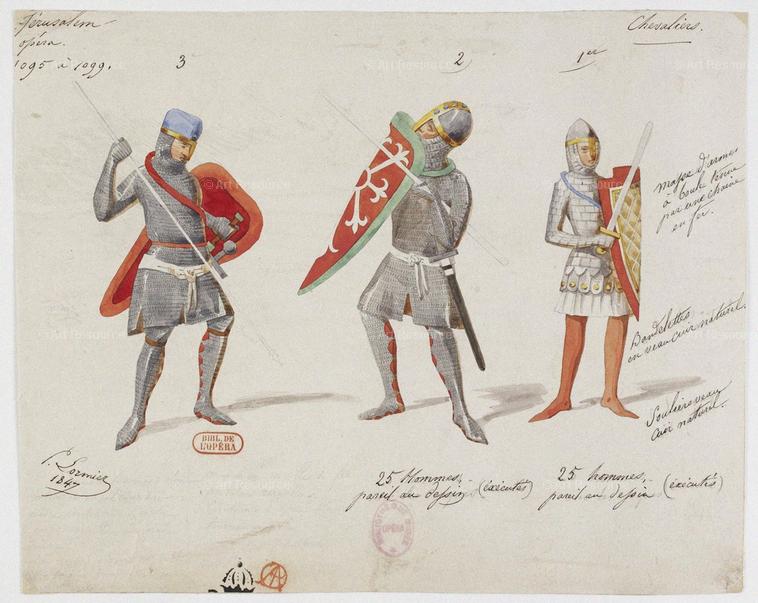 Jérusalem -
opéra.
1095 à 1099.
Chevaliers.
3
2
1er
masse d'armes
à boule tenue
par une chaine
en fer.
Bandelettes
en veau cuir naturel.
Souliers veau
cuir naturel.
BIBL. DE
L'OPÉRA
P. Lormier
1847
25 Hommes,
pareil au dessin (éxécutés)
25 hommes,
pareil au dessin (éxécutés)
OPÉRA
© Art Resource